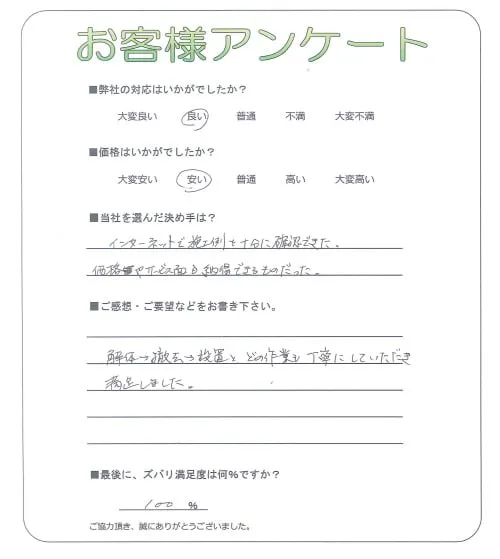 お客様アンケート
■弊社の対応はいかがでしたか？
大変良い 良い 普通 不満 大変不満
■価格はいかがでしたか？
大変安い 安い 普通 高い 大変高い
■当社を選んだ決め手は？
インターネットで施工例を十分に確認できた。
価格やサービス面も納得できるものだった。
■ご感想・ご要望などをお書き下さい。
解体→撤去→設置と どの作業も丁寧にしていただき
満足しました。
■最後に、ズバリ満足度は何％ですか？
100 %
ご協力頂き、誠にありがとうございました。